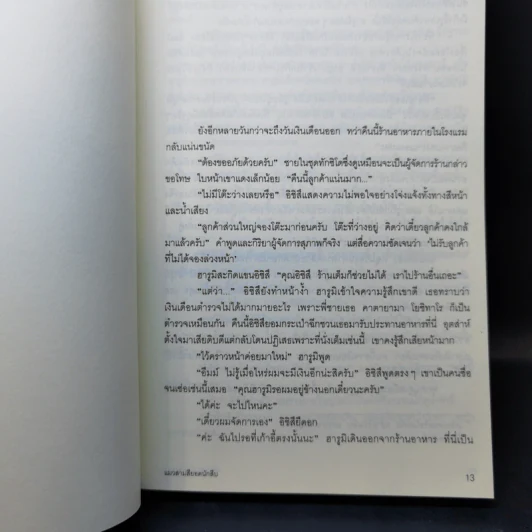 ยังอีกหลายวันกว่าจะถึงวันเงินเดือนออก ทว่าคืนนี้ร้านอาหารภายในโรงแรม
กลับแน่นขนัด
“ต้องขออภัยด้วยครับ” ชายในชุดทักซิโดซึ่งดูเหมือนจะเป็นผู้จัดการร้านกล่าว
ขอโทษ ใบหน้าเขาแดงเล็กน้อย “คืนนี้ลูกค้าแน่นมาก...”
“ไม่มีโต๊ะว่างเลยหรือ” อิชิสึแสดงความไม่พอใจอย่างโจ่งแจ้งทั้งทางสีหน้า
และน้ำเสียง
“ลูกค้าส่วนใหญ่จองโต๊ะมาก่อนครับ โต๊ะที่ว่างอยู่ คิดว่าเดี๋ยวลูกค้าคงใกล้
มาแล้วครับ” คำพูดและกิริยาผู้จัดการสุภาพก็จริง แต่สื่อความชัดเจนว่า ‘ไม่รับลูกค้า
ที่ไม่ได้จองล่วงหน้า’
ฮารุมิสะกิดแขนอิชิสึ “คุณอิชิสึ ร้านเต็มก็ช่วยไม่ได้ เราไปร้านอื่นเถอะ”
“แต่ว่า...” อิชิสึยังทำหน้าง้ำ ฮารุมิเข้าใจความรู้สึกเขาดี เธอทราบว่า
เงินเดือนตำรวจไม่ได้มากมายอะไร เพราะพี่ชายเธอ คาตายามา โยชิทาโร ก็เป็น
ตำรวจเหมือนกัน คืนนี้อิชิสึยอมกระเป๋าฉีกชวนเธอมารับประทานอาหารที่นี่ อุตส่าห์
ตั้งใจมาเสียดิบดีแต่กลับโดนปฏิเสธเพราะที่นั่งเต็มเช่นนี้ เขาคงรู้สึกเสียหน้ามาก
“ไว้คราวหน้าค่อยมาใหม่” ฮารุมิพูด
“อืมม์ ไม่รู้เมื่อไหร่ผมจะมีเงินอีกน่ะสิครับ” อิชิสึพูดตรงๆ เขาเป็นคนซื่อ
จนเซ่อเช่นนี้เสมอ “คุณฮารุมิรอผมอยู่ข้างนอกเดี๋ยวนะครับ”
“ได้ค่ะ จะไปไหนคะ”
“เดี๋ยวผมจัดการเอง” อิชิสึยืดอก
“ค่ะ ฉันไปรอที่เก้าอี้ตรงนั้นนะ” ฮารุมิเดินออกจากร้านอาหาร ที่นี่เป็น
แมวสามสียอดนักสืบ
13